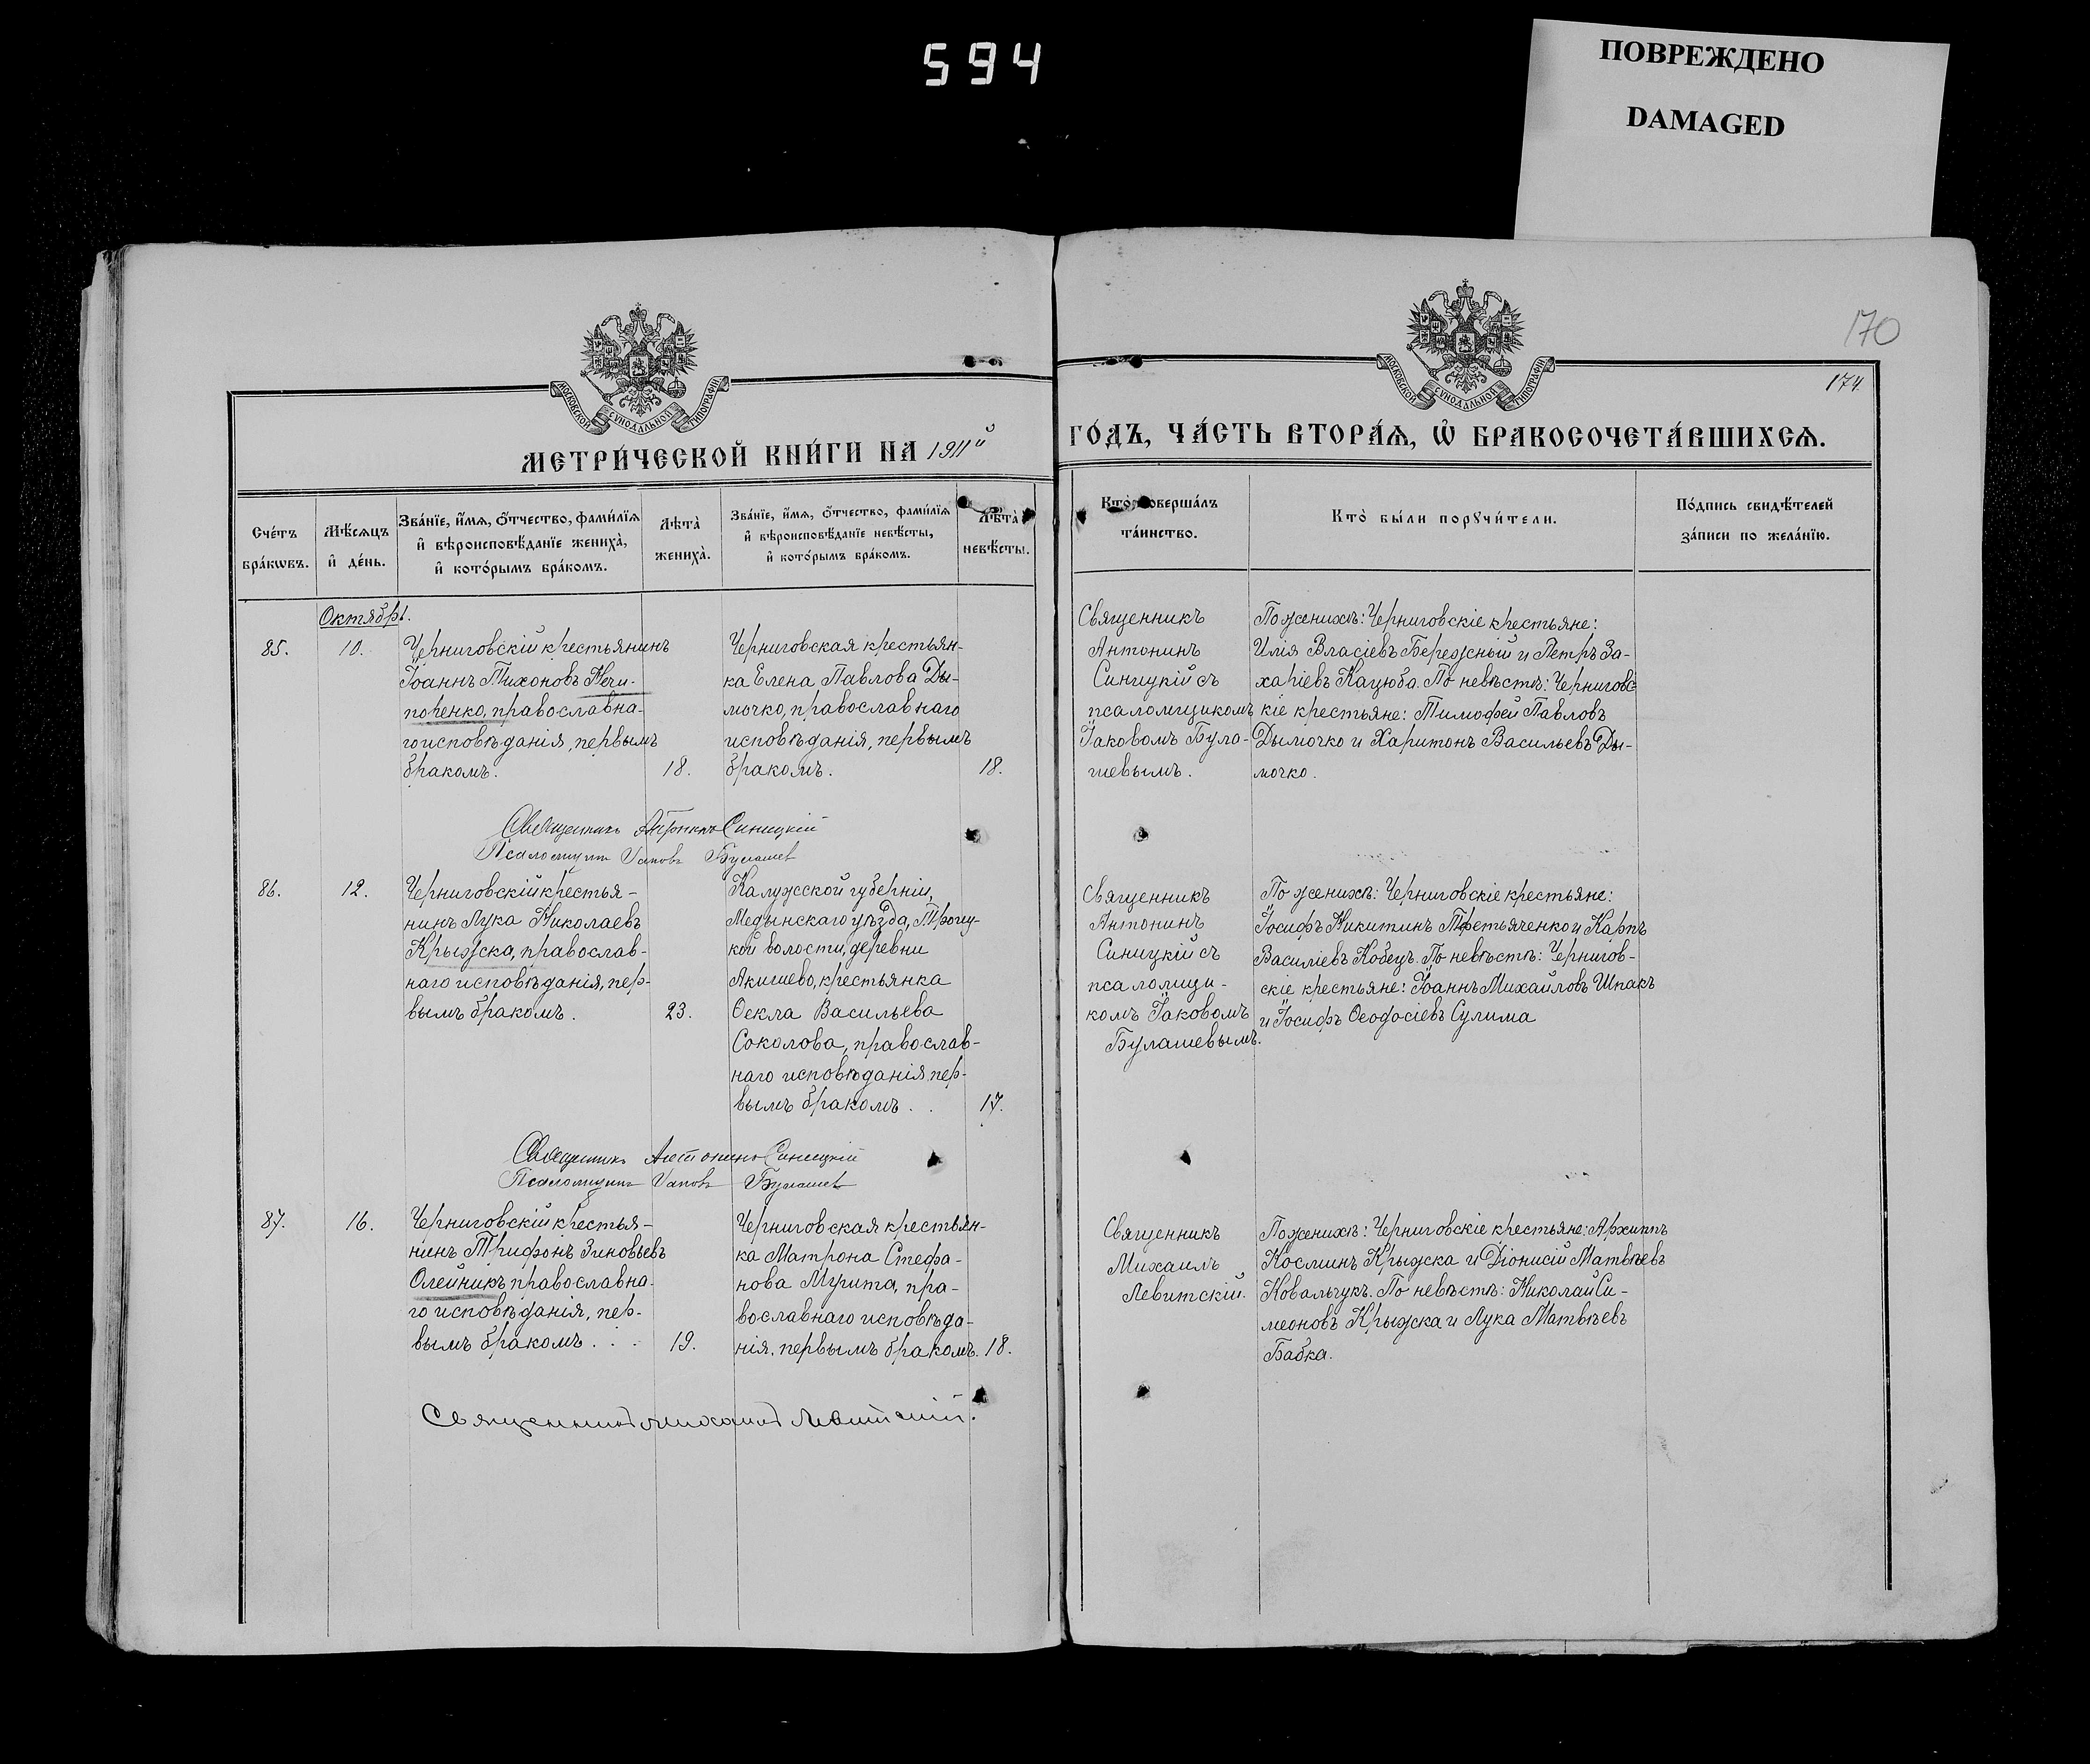 594
ПОВРЕЖДЕНО
DAMAGED
170
174.
МОСКОВСКОЙ СѴНОДАЛЬНОЙ ТИПОГРАФІИ
МОСКОВСКОЙ СѴНОДАЛЬНОЙ ТИПОГРАФІИ
МЕТРИ́ЧЕСКОЙ КНИ́ГИ НА 1911й
ГО́ДЪ, ЧА́СТЬ ВТОРА́Ѧ, Ѡ҆ БРАКОСОЧЕТА́ВШИХСѦ.
Сче́тъ
бра́кѡвъ.
Мѣ́сѧцъ
и҆ де́нь.
Зва́нїе, и҆́мѧ, ѻ҆́тчество, фами́лїѧ
и҆ вѣроисповѣ́данїе женихà,
и҆ кото́рымъ бра́комъ.
Лѣ́тà
женихà.
Зва́нїе, и҆́мѧ, ѻ҆́тчество, фами́лїѧ
и҆ вѣроисповѣ́данїе невѣ́сты,
и҆ кото́рымъ бра́комъ.
Лѣ́тà
невѣ́сты.
Ктò совершáлъ
та́инство.
Ктò бы́ли порꙋчи́тели.
По́дпись свидѣ́телей
за́писи по жела́нїю.
Октябрь.
85.
10.
Черниговскій крестьянинъ
Іоаннъ Тихоновъ Нечи-
поренко, православна-
го исповѣданія, первымъ
бракомъ.
18.
Черниговская крестьян-
ка Елена Павлова Ды-
мочко, православнаго
исповѣданія, первымъ
бракомъ.
18.
Священникъ
Антонинъ
Синицкій съ
псаломщикомъ
Іаковомъ Була-
шевымъ.
По женихѣ: Черниговскіе крестьяне:
Илія Власіевъ Бережный и Петръ За-
харіевъ Кацюба. По невѣстѣ: Черниговс-
кіе крестьяне: Тимофей Павловъ
Дымочко и Харитонъ Васильевъ Ды-
мочко.
Священникъ Антонинъ Синицкій
Псаломщикъ Іаковъ Булашевъ
86.
12.
Черниговскій крестья-
нинъ Лука Николаевъ
Крыжска, православ-
наго исповѣданія, пер-
вымъ бракомъ.
23.
Калужской губерніи,
Медынскаго уѣзда, Троиц-
кой волости, деревни
Акишево, крестьянка
Ѳекла Васильева
Соколова, православ-
наго исповѣданія, пер-
вымъ бракомъ. .
17.
Священникъ
Антонинъ
Синицкій съ
псаломщи-
комъ Іаковомъ
Булашевымъ.
По женихѣ: Черниговскіе крестьяне:
Іосифъ Никитинъ Третьяченко и Карпъ
Василіевъ Кобецъ. По невѣстѣ: Чернигов-
скіе крестьяне: Іоаннъ Михайловъ Шпакъ
и Іосифъ Ѳеодосіевъ Сулима
Священникъ Антонинъ Синицкій
Псаломщикъ Іаковъ Булашевъ
87.
16.
Черниговскій крестья-
нинъ Трифонъ Зиновьевъ
Олейникъ, православна-
го исповѣданія, пер-
вымъ бракомъ . . .
19.
Черниговская крестьян-
ка Матрона Стефа-
нова Мурита, пра-
вославнаго исповѣда-
нія, первымъ бракомъ.
18.
Священникъ
Михаилъ
Левитскій.
По женихѣ: Черниговскіе крестьяне: Архиппъ
Косминъ Крыжска и Діонисій Матвѣевъ
Ковальчукъ. По невѣстѣ: Николай Си-
меоновъ Крыжска и Лука Матвѣевъ
Бабка.
Священникъ Михаилъ Левитскій.